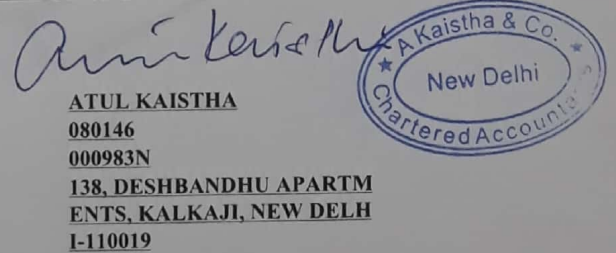 A Kaistha & Co.
New Delhi
Chartered Accountants
ATUL KAISTHA
080146
000983N
138, DESHBANDHU APARTM
ENTS, KALKAJI, NEW DELH
I-110019